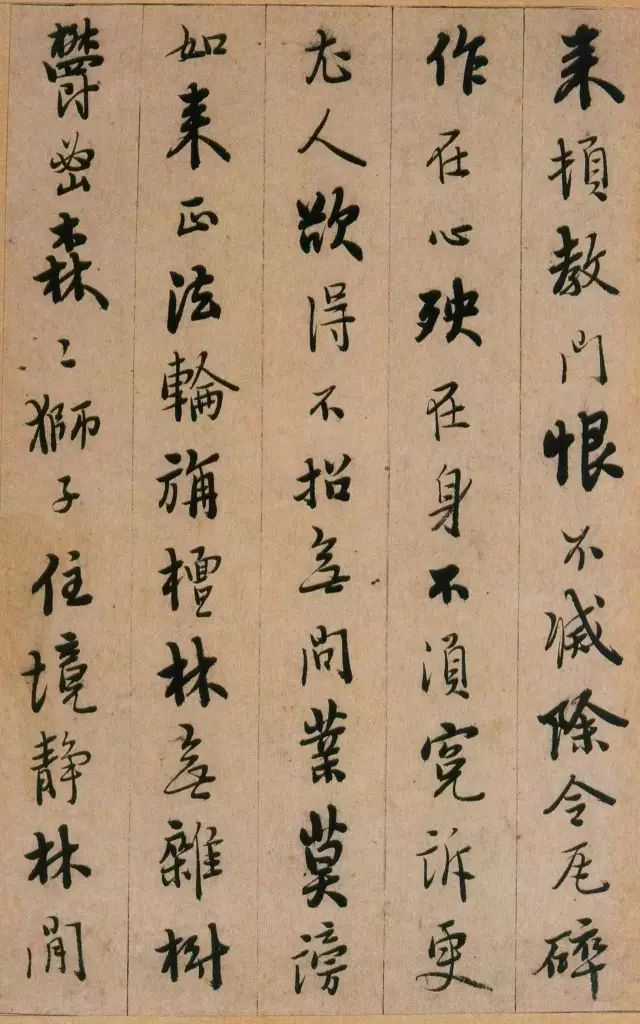 来頓教門恨不滅除令瓦碎
作在心殃在身不須寃訴更
尤人欲得不招無間業莫謗
如来正法輪旃檀林無雜樹
欝密森〻獅子住境静林閒